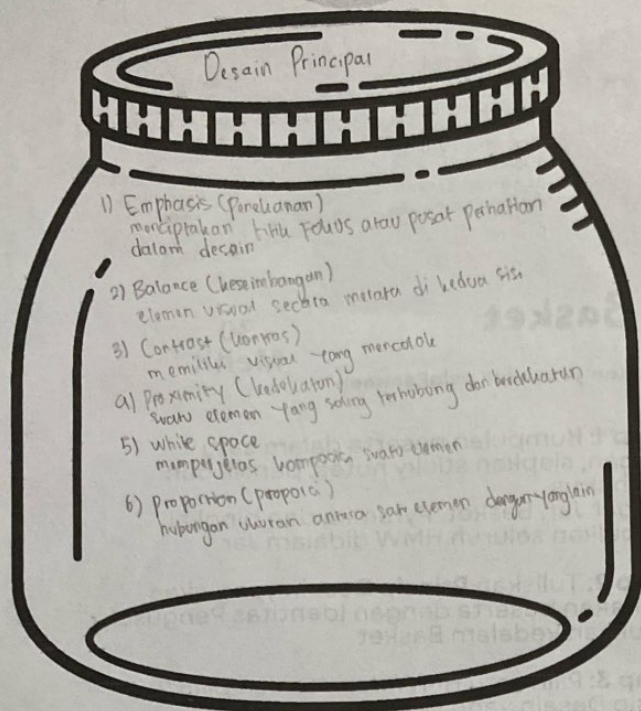 Desain Principal
1) Emphasis (Penekanan)
menciptakan titik Fokus atau pusat perhatian
dalam desain
2) Balance (keseimbangan)
elemen visual secara merata di kedua sisi
3) Contrast (kontras)
memiliki visual yang mencolok
4) Proximity (kedekatan)
suatu elemen yang saling terhubung dan berdekatan
5) white space
memperjelas komposisi suatu elemen
6) Proportion (proporsi)
hubungan ukuran antara satu elemen dengan yang lain